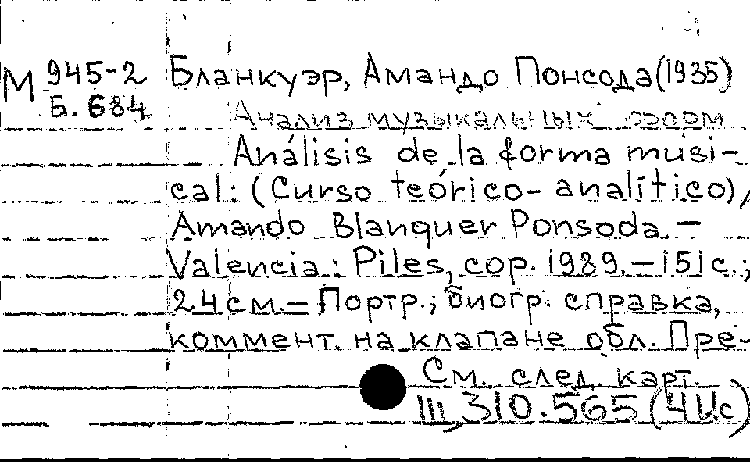 М 945-2 Бланкуэр, Амандо Понсода (1935)
Б. 684
Анализ музыкальных форм
Análisis de la forma musi-
cal: (Curso teórico-analítico),
Amando Blanquer Ponsoda. –
Valencia: Piles, cop. 1989. – 151 с.;
24 см. – Портр.; биогр. справка,
коммент. на клапане обл. Пре-
См. след. карт.
III, 310.565 (4Ис)